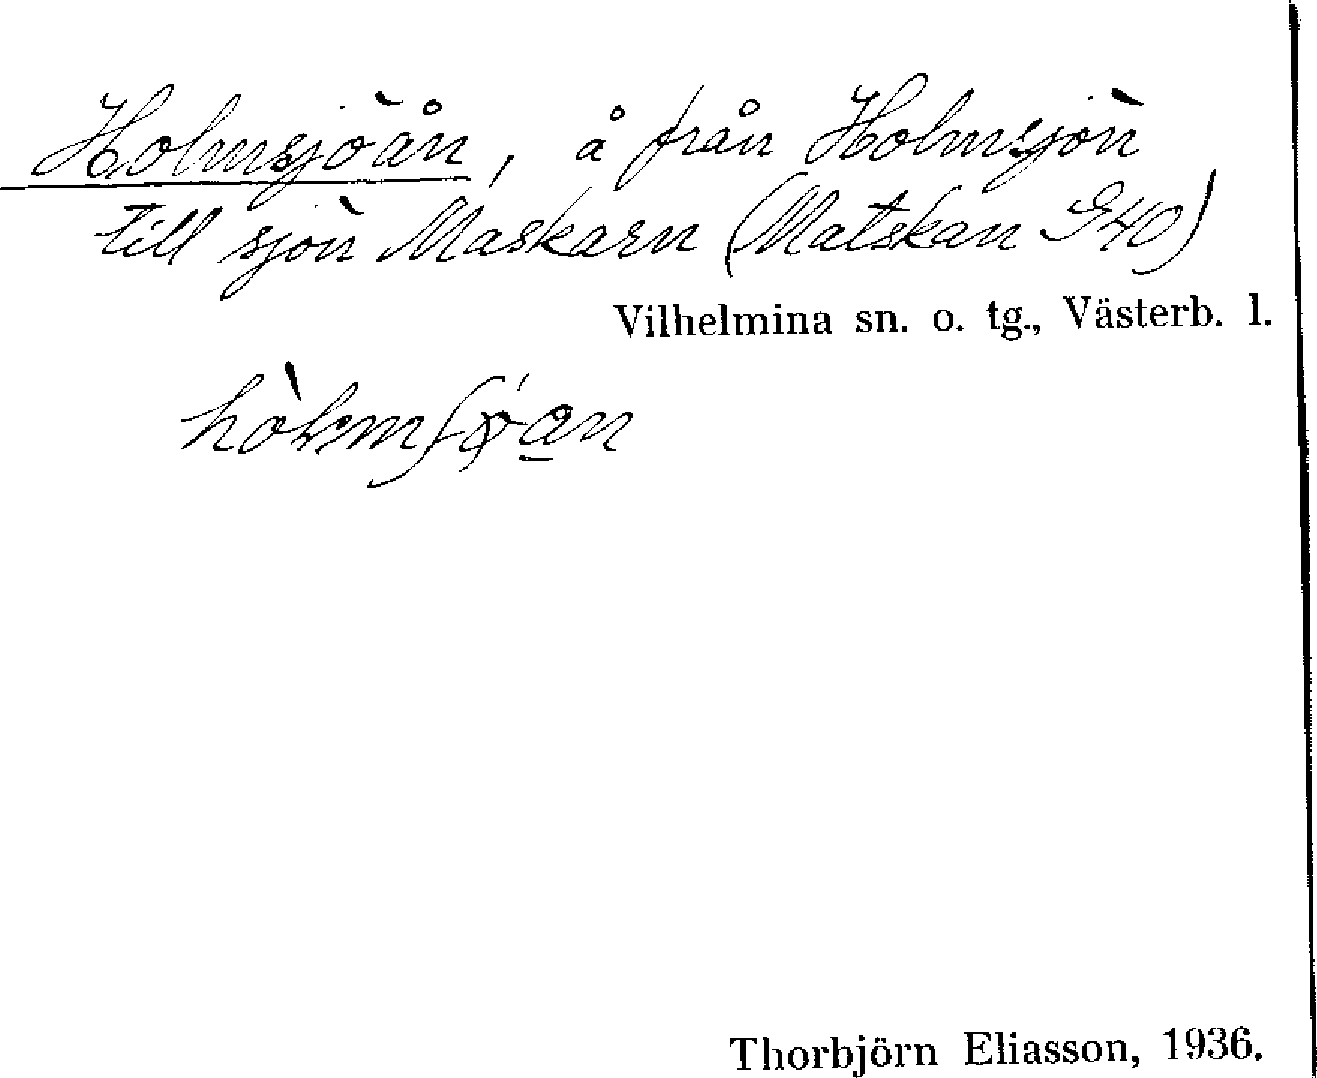 Holmsjöån, å från Holmsjön
till sjön Maskarn (Matskan G40)
Vilhelmina sn. o. tg., Västerb. l.
Thorbjörn Eliasson, 1936.